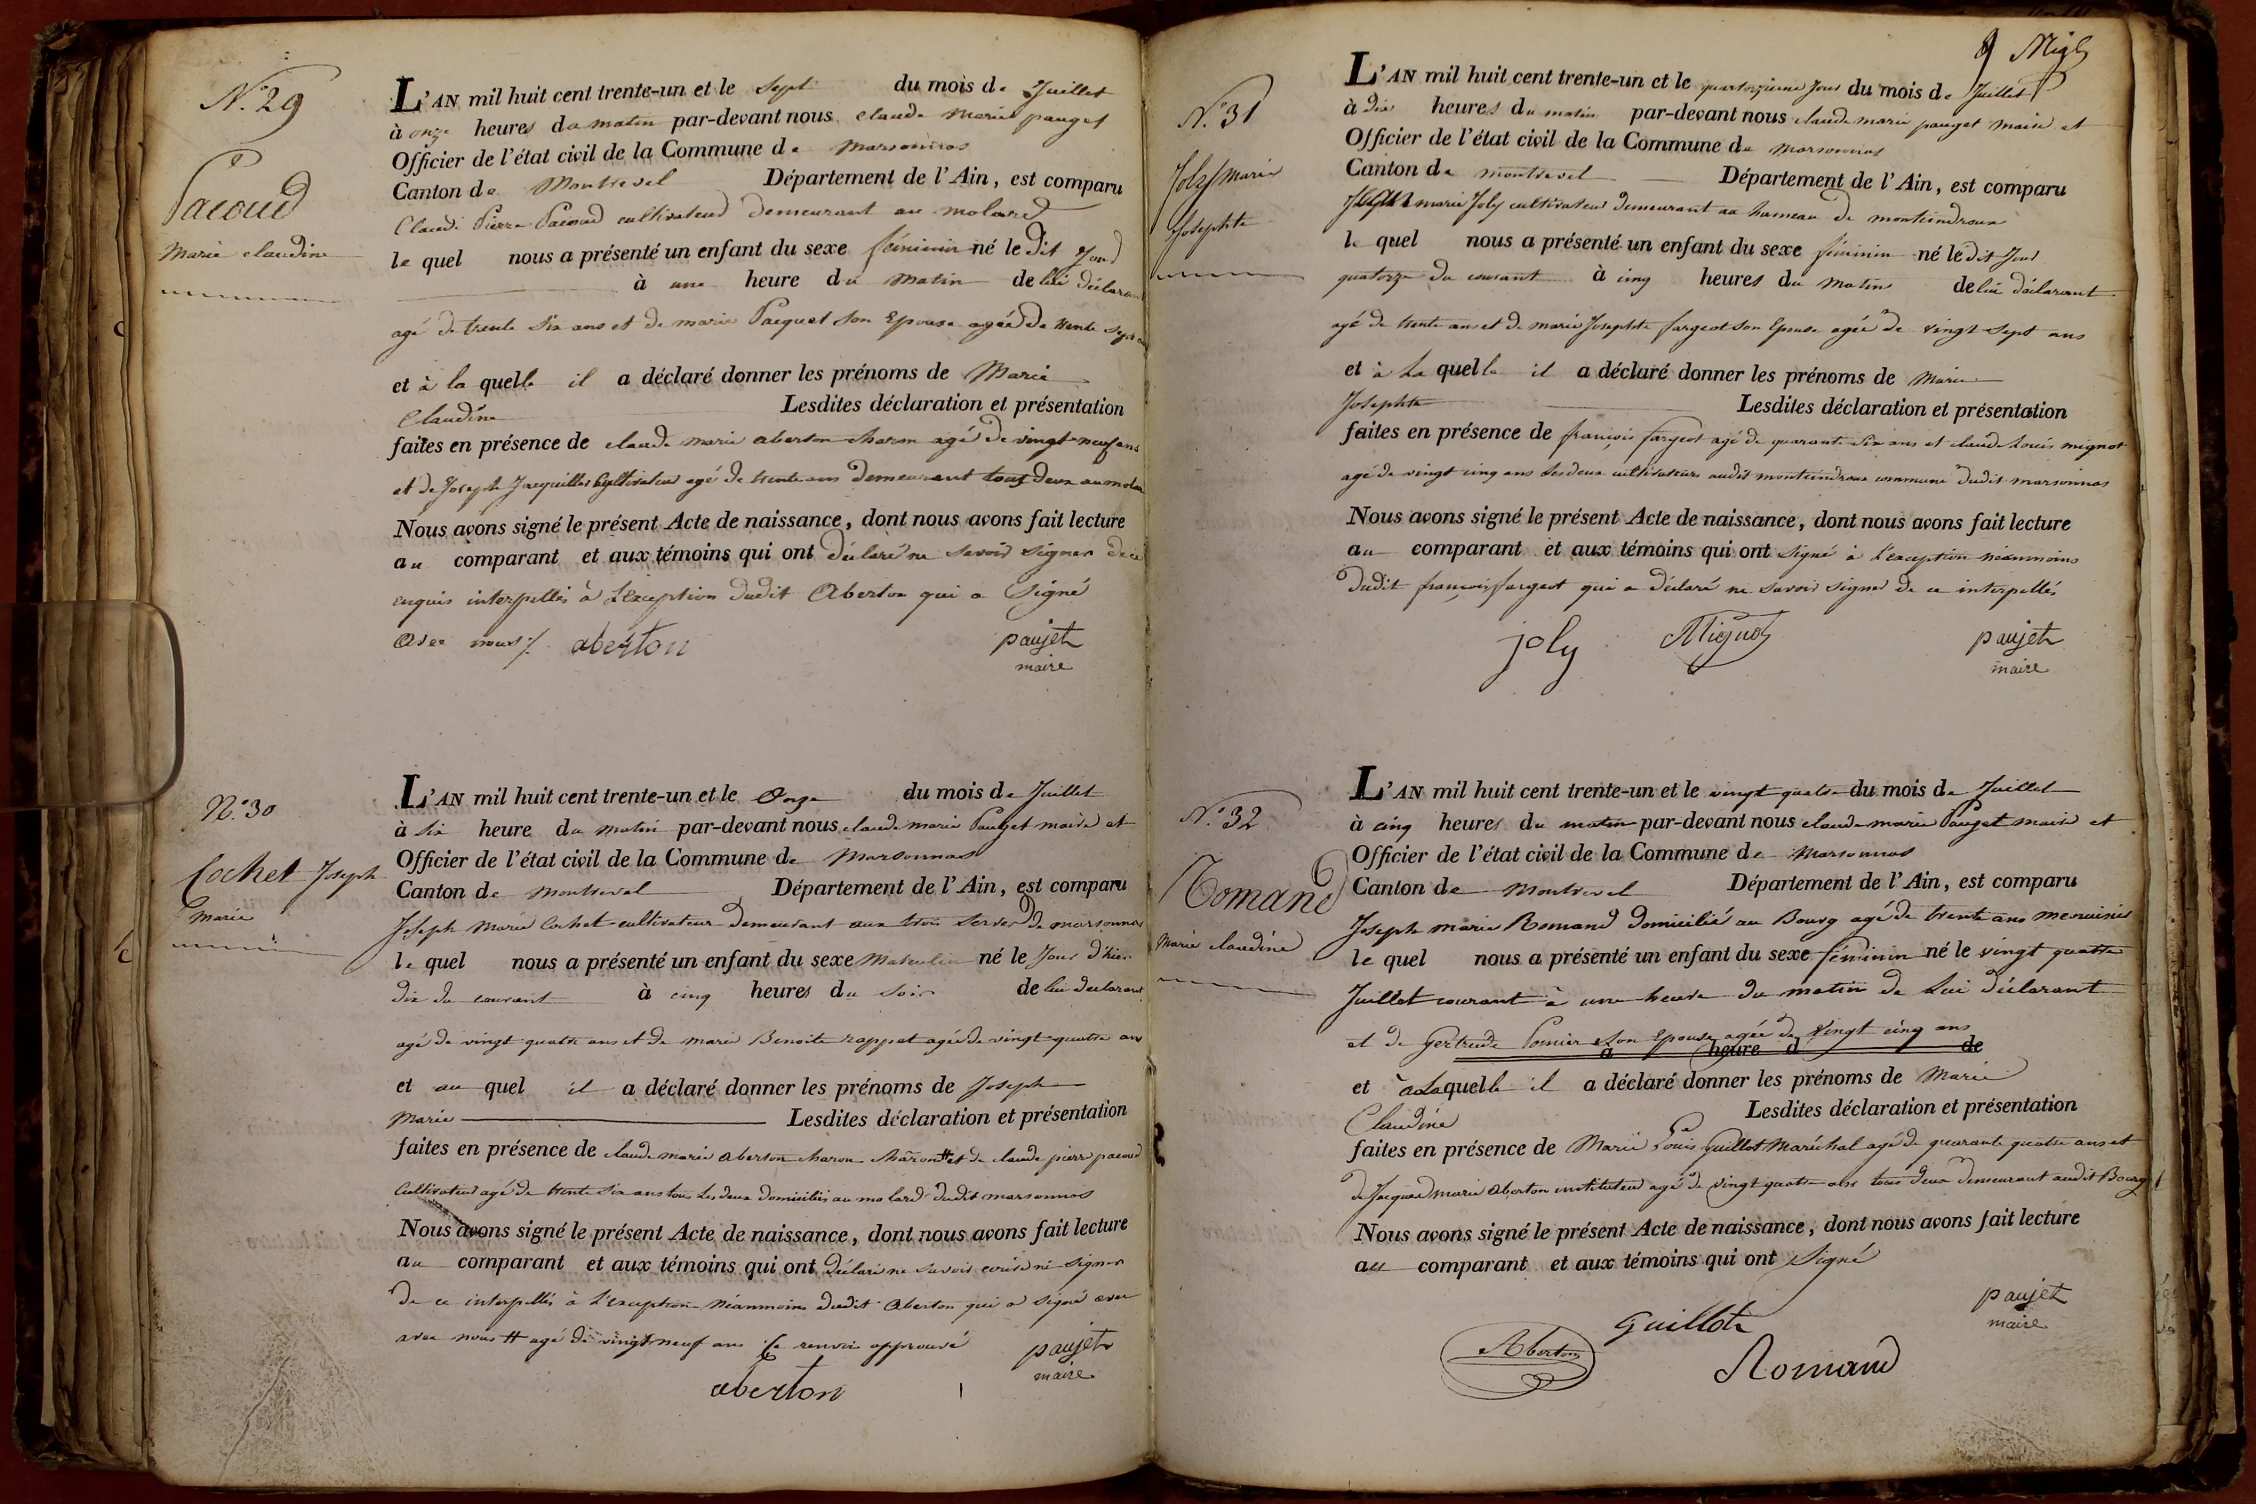 N.° 29
Pacoud
Marie claudine
L'AN mil huit cent trente-un et le sept du mois de Juillet
à onze heures du matin par-devant nous claude marie pauget
Officier de l'état civil de la Commune de Marsonnas
Canton de Montrevel Département de l'Ain, est comparu
Claude Pierre Pacoud cultivateur demeurant au molard
le quel nous a présenté un enfant du sexe féminin né le dit Jour
à une heure du matin de lui déclarant
agé de trente six ans et de marie Pacquet son Epouse agée de trente sept ans
et à la quelle il a déclaré donner les prénoms de Marie
Claudine Lesdites déclaration et présentation
faites en présence de claude marie aberton charon agé de vingt neuf ans
et de Joseph Jacquillet Cultivateur agé de trente ans demeurant tous deux au molard
Nous avons signé le présent Acte de naissance, dont nous avons fait lecture
au comparant et aux témoins qui ont déclaré ne savoir signer de ce
enquis interpellés à l'exception dudit Aberton qui a signé
avec nous /. aberton paujet
maire
N.° 30
Cochet Joseph
marie
L'AN mil huit cent trente-un et le Onze du mois de Juillet
à six heure du matin par-devant nous claude marie Pauget maire et
Officier de l'état civil de la Commune de Marsonnas
Canton de Montrevel Département de l'Ain, est comparu
Joseph Marie Cochet cultivateur demeurant aux trois de marsonnas
le quel nous a présenté un enfant du sexe Masculin né le Jour d'hier
dix du courant à cinq heures du soir de lui déclarant
agé de vingt quatre ans et de marie Benoite rappet agée de vingt quatre ans
et au quel il a déclaré donner les prénoms de Joseph
Marie Lesdites déclaration et présentation
faites en présence de claude marie aberton charon charon # et de claude pierre pacoud
Cultivateur agé de trente six ans tous les deux domiciliés au molard dudit marsonnas
Nous avons signé le présent Acte de naissance, dont nous avons fait lecture
au comparant et aux témoins qui ont déclaré ne savoir écrire ni signer
de ce interpellés à l'exception néanmoins dudit Aberton qui a signé avec
avec nous # agé de vingt neuf ans Ce renvoi approuvé paujet
maire
aberton
9 Migt
N.° 31
Joly marie
Josephte
L'AN mil huit cent trente-un et le quatorzieme jour du mois de Juillet
à dix heures du matin par-devant nous claude marie pauget maire et
Officier de l'état civil de la Commune de Marsonnas
Canton de montrevel Département de l'Ain, est comparu
marie Joly cultivateur demeurant au hameau de montcindroux
le quel nous a présenté un enfant du sexe féminin né le dit Jour
quatorze du courant à cinq heures du matin de lui déclarant
agé de trente ans et de marie Josephte fargeot son Epouse agée de vingt sept ans
et à La quelle il a déclaré donner les prénoms de Marie
Josephte Lesdites déclaration et présentation
faites en présence de françois fargeot agé de quarante six ans et claude Louis mignot
agé de vingt cinq ans les deux cultivateurs audit montcindroux commune dudit marsonnas
Nous avons signé le présent Acte de naissance, dont nous avons fait lecture
au comparant et aux témoins qui ont signé à L'exception néanmoins
dudit françois fargeot qui a déclaré ne savoir signer de ce interpellés
joly Mignot paujet
maire
N.° 32
Romand
Marie claudine
L'AN mil huit cent trente-un et le vingt quatre du mois de Juillet
à cinq heures du matin par-devant nous claude marie Pauget maire et
Officier de l'état civil de la Commune de Marsonnas
Canton de Montrevel Département de l'Ain, est comparu
Joseph marie Romand domicilié au Bourg agé de trente ans menuisier
le quel nous a présenté un enfant du sexe féminin né le vingt quatre
Juillet courant à une heure du matin de Lui déclarant
et de Gertrude Pornier son Epouse agée de vingt cinq ans
à heure d de
et à La quelle il a déclaré donner les prénoms de Marie
Claudine Lesdites déclaration et présentation
faites en présence de Marie Louis Guillot Maréchal agé de quarante quatre ans et
de Jacques marie Aberton instituteur agé de vingt quatre ans tous deux demeurant audit Bourg
Nous avons signé le présent Acte de naissance, dont nous avons fait lecture
au comparant et aux témoins qui ont Signé
paujet
maire
Guillot
Aberton
Romand